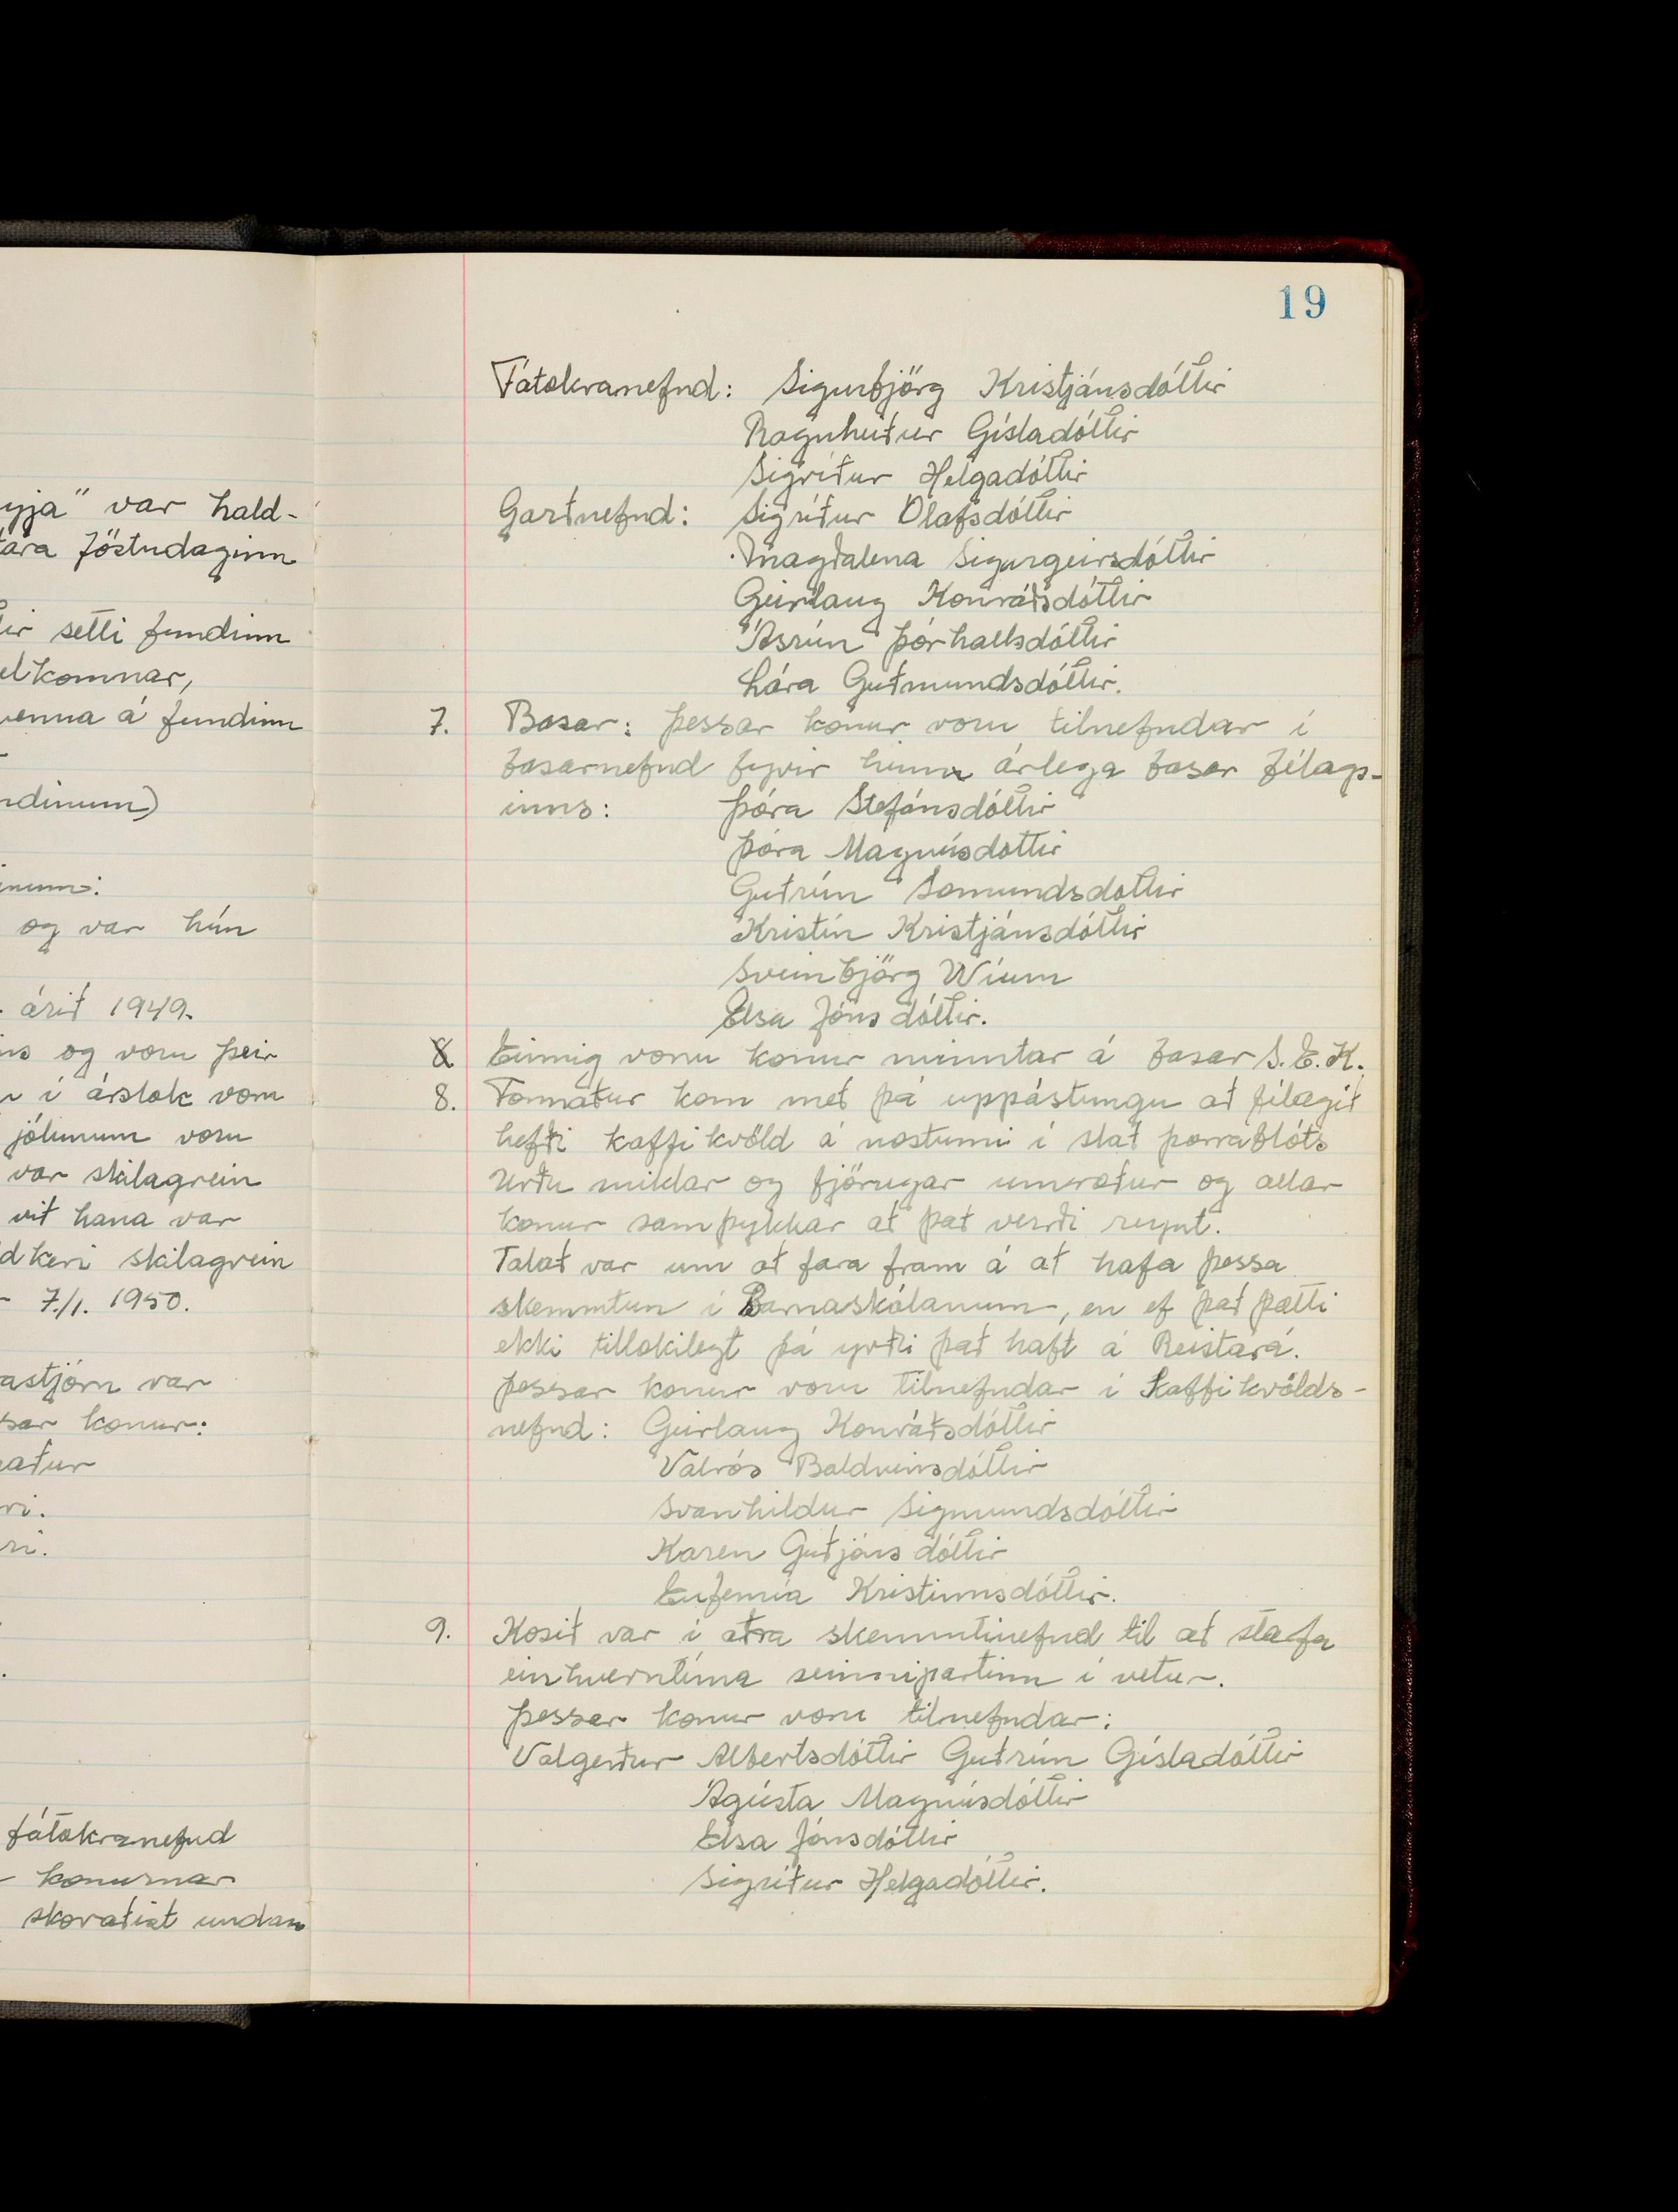 yja" var hald-
tára föstudaginn
ir setti fundinn
elkomnar,
venna á fundinn
ndinum)
inum:
og var hún
árið 1949.
ns og voru þeir
r í árslok voru
jólunum voru
var skilagrein
við hana var
dkeri skilagrein
- 7./1. 1950.
astjórn var
sar konur:
eaður
ri.
ri.
fátækranefnd
- konurnar
skoraðist undan
19
Fátækranefnd: Sigurbjörg Kristjánsdóttir
Ragnheiður Gísladóttir
Sigríður Helgadóttir
Garðnefnd: Sigríður Ólafsdóttir
Magðalena Sigurgeirsdóttir
Geirlaug Konráðsdóttir
Ásrún Þórhallsdóttir
Lára Guðmundsdóttir.
7. Basar: Þessar konur voru tilnefndar í
basarnefnd fyrir hinn árlega basar félags-
inns: Þóra Stefánsdóttir
Þóra Magnúsdóttir
Guðrún Sæmundsdóttir
Kristín Kristjánsdóttir
Sveinbjörg Wíum
Elsa Jónsdóttir.
8. Einnig voru konur minntar á basar S.E.K.
8. Formaður kom með þá uppástungu að félagið
hefði kaffikvöld á næstunni í stað þorrablóts
Urðu miklar og fjörugar umræður og allar
konur samþykkar að það verði reynt.
Talað var um að fara fram á að hafa þessa
skemmtun í Barnaskólanum, en ef það þætti
ekki tillækilegt þá yrði það haft á Reistará.
Þessar konur voru tilnefndar í Kaffikvölds-
nefnd: Geirlaug Konráðsdóttir
Valrós Baldvinsdóttir
Svanhildur Sigmundsdóttir
Karen Guðjónsdóttir
Eufemía Kristinnsdóttir.
9. Kosið var í aðra skemmtinefnd til að stafa
einhverntíma seinnipartinn í vetur.
Þessar konur voru tilnefndar:
Valgerður Albertsdóttir Guðrún Gísladóttir
Ágústa Magnúsdóttir
Elsa Jónsdóttir
Sigríður Helgadóttir.